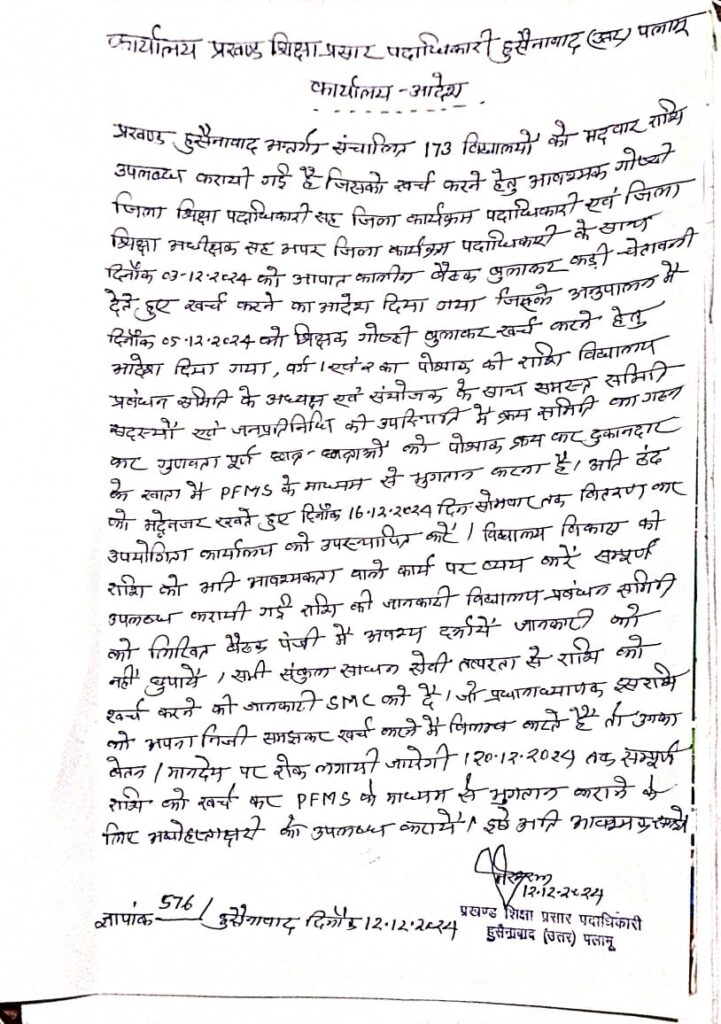 कार्यालय प्रखण्ड शिक्षा प्रसार पदाधिकारी हुसैनाबाद (उत्तर) पलामू
कार्यालय - आदेश
प्रखण्ड हुसैनाबाद अन्तर्गत संचालित 173 विद्यालयों को मदवार राशि
उपलब्ध करायी गई है जिसको खर्च करने हेतु आवश्यक गोष्ठी
जिला शिक्षा पदाधिकारी सह जिला कार्यक्रम पदाधिकारी एवं जिला
शिक्षा अधीक्षक सह अपर जिला कार्यक्रम पदाधिकारी के साथ
दिनाँक 03-12-2024 को आपात कालीन बैठक बुलाकर कड़ी चेतावनी
देते हुए खर्च करने का आदेश दिया गया जिसके अनुपालन में
दिनाँक 05.12.2024 को शिक्षक गोष्ठी बुलाकर खर्च करने हेतु
आदेश दिया गया, वर्ग 1 एवं 2 का पोशाक की राशि विद्यालय
प्रबंधन समिति के अध्यक्ष एवं संयोजक के साथ समस्त समिति
सदस्यों एवं जनप्रतिनिधि की उपस्थिति में क्रय समिति का गठन
कर गुणवता पूर्ण छात्र-छात्राओं को पोशाक क्रय कर दुकानदार
के खाता में PFMS के माध्यम से भुगतान करना है। अति ठंढ
को मद्देनजर रखते हुए दिनाँक 16.12.2024 दिन सोमवार तक वितरण कर
उपयोगिता कार्यालय को उपस्थापित करें। विद्यालय विकास की
राशि को अति आवश्यकता वाले कार्य पर व्यय करें सम्पूर्ण
उपलब्ध करायी गई राशि की जानकारी विद्यालय प्रबंधन समिति
को लिखित बैठक पंजी में अवश्य दर्शायें जानकारी को
नहीं छुपायें। सभी संकुल साधन सेवी तत्परता से राशि को
खर्च करने की जानकारी SMC को दें। जो प्रधानाध्यापक इस राशि
को अपना निजी समझकर खर्च करने में विलम्ब करते हैं तो उनका
वेतन/मानदेय पर रोक लगायी जायेगी। 20.12.2024 तक सम्पूर्ण
राशि को खर्च कर PFMS के माध्यम से भुगतान कराने के
लिए अधोहस्ताक्षरी को उपलब्ध करायें। इसे अति आवश्यक समझें
12.12.2024
प्रखण्ड शिक्षा प्रसार पदाधिकारी
हुसैनाबाद (उत्तर) पलामू
ज्ञापांक 576/ हुसैनाबाद दिनाँक 12.12.2024